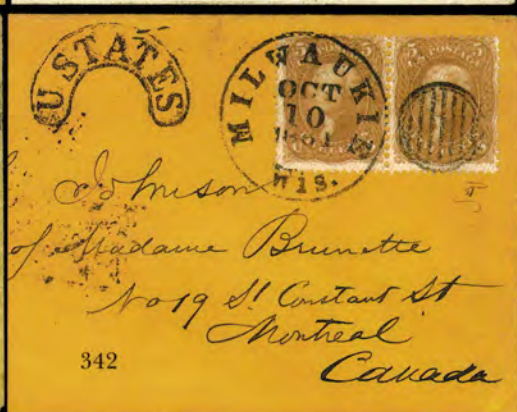 U STATES
MILWAUKIE
OCT
10
1861
WIS.
5 5 5 5
U.S. POSTAGE
Johnson
of Madame Brunette
No 19 St Constant St
Montreal
Canada
342